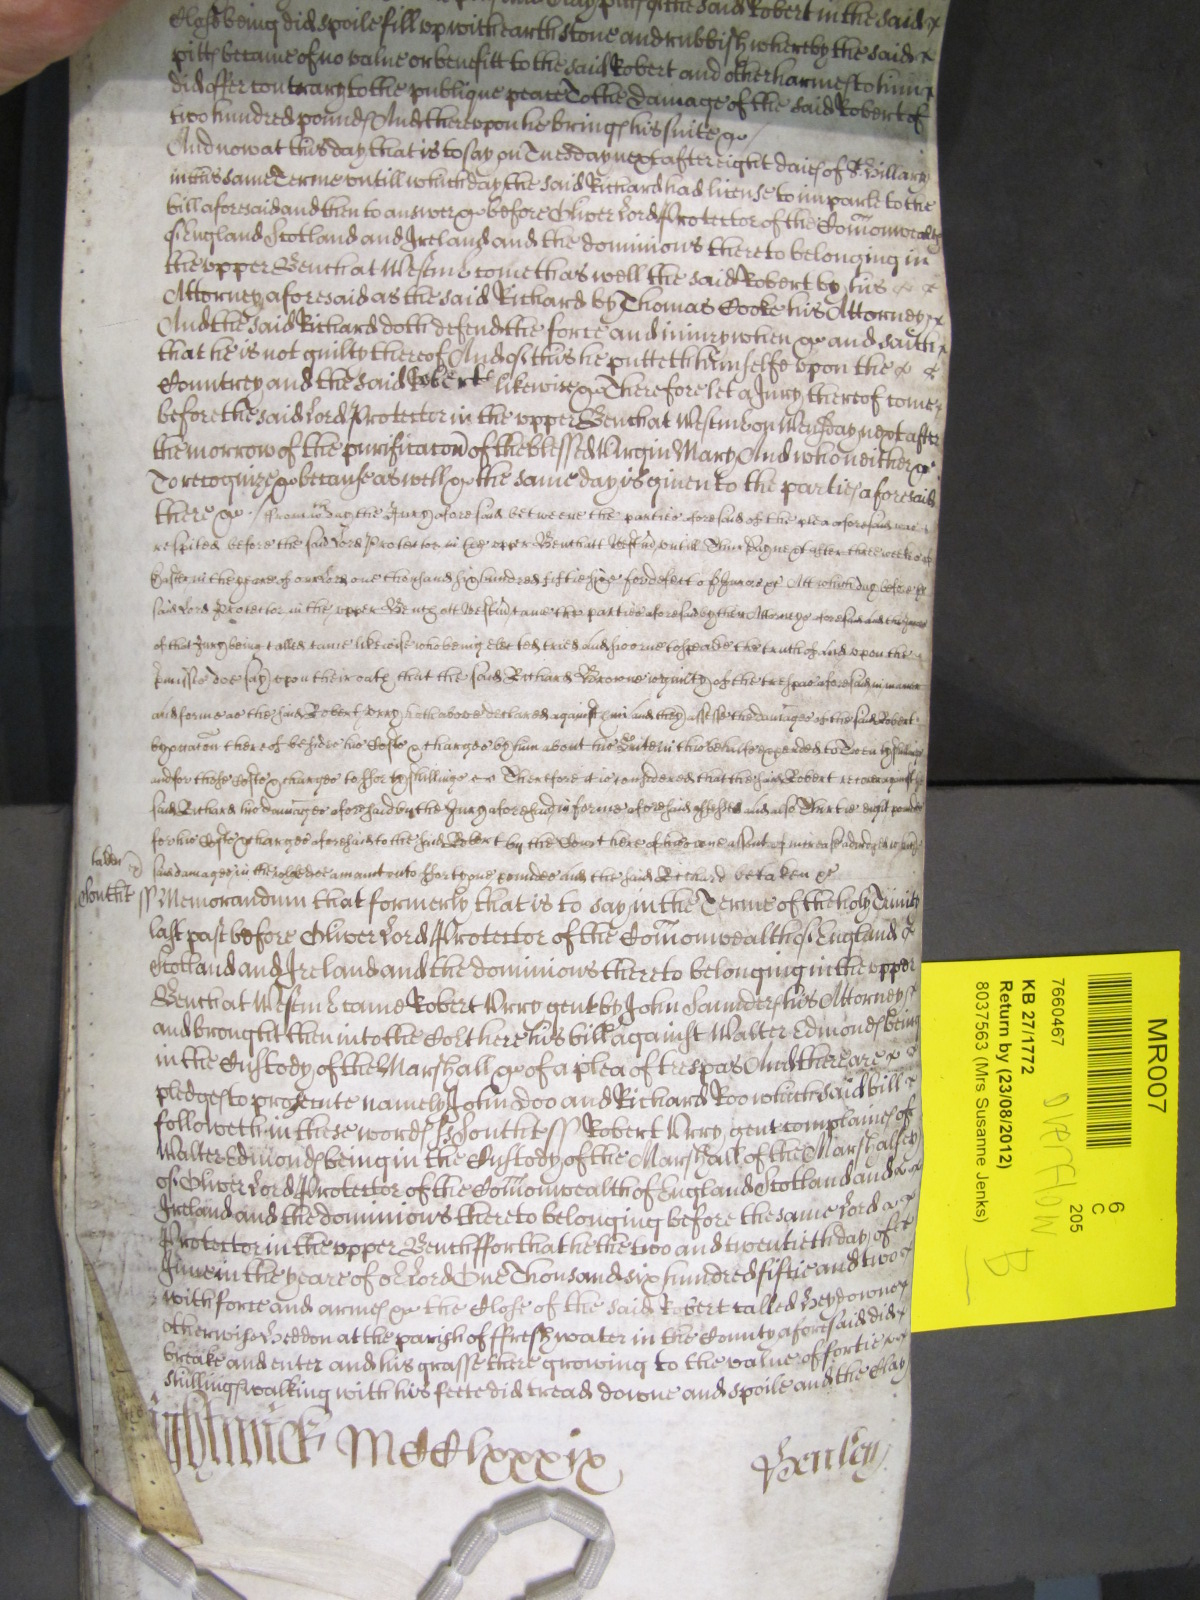 Close being did spoile fill up with earth stone and rubbish whereby the said
pitts became of no value or benefitt to the said Robert and other harmes to him
did offer contrary to the publique peace To the Damage of the said Robert of
two hundred pounds And thereupon he brings his suite &c
And now at this day that is to say on Tuesday next after eight daies of St Hillary
in this same Terme untill which day the said Richard had license to imparle to the
bill aforesaid and then to answer &c before Oliver Lord Protector of the Com̄onwealth
of England Scotland and Ireland and the dominions thereto belonging in
the upper Bench at Westmr cometh as well the said Robert by his
Attorney aforesaid as the said Richard by Thomas Cooke his Attorney
And the said Richard doth defend the force and iniury when &c and saith
that he is not guilty thereof And of this he putteth himselfe upon the
Countrey and the said Robert likewise &c Therefore let a Jury thereof come
before the said Lord Protector in the upper Bench at Westmr on Wensday next after
the morrow of the purificacon of the blessed Virgin Mary And who neither &c
To recognize &c because as well &c the same day is given to the parties aforesaid
there &c From which day the Jury aforesaid betweene the parties aforesaid of the plea aforesaid was
respited before the said Lord Protector in the upper Bench att Westmr untill Thursday next after three weekes of
Easter in the yeare of our Lord one thousand six hundred fiftie six for defect of Jurors &c Att which day before the
said Lord Protector in the upper Bench att Westmr came the parties aforesaid by their Attorneys aforesaid and the Jurors
of that Jury being called came likewise who being elected tried and sworne to speake the truth of and upon the
premisses doe say upon their oath that the said Richard Browne is guilty of the trespas aforesaid in manner
and forme as the said Robert Urry hath above declared against him and they assesse the damages of the said Robert
by occacon thereof besides his Costs & charges by him about his Suite in this behalfe expended to Twenty shillings
and for those Costs & charges to fforty shillings Therefore it is considered that the said Robert recover against the
said Richard his damages aforesaid by the Jury aforesaid in forme aforesaid assessed and also Thirtie eight pounds
for his Costs & charges aforesaid to the said Robert by the Court here of his owne assent of increase adiudged which
said damages in the whole doe amount unto fforty one poundes and the said Richard be taken &c
taken
Southt ss Memorandum that formerly that is to say in the Terme of the holy Trinity
last past before Oliver Lord Protector of the Com̄onwealth of England
Scotland and Ireland and the dominions thereto belonging in the upper
Bench at Westmr came Robert Urry gent by John Saunders his Attorney
and brought then into the Cort here his bill against Walter Edmonds being
in the Custody of the Marshall &c of a plea of trespas And there are
pledges to prosecute namely John Doo and Richard Roo which said bill
followeth in these words ss Southt ss Robert Urry gent complaines of
Walter Edmonds being in the Custody of the Marshall of the Marshalsey
of Oliver Lord Protector of the Com̄onwealth of England Scotland and
Ireland and the dominions thereto belonging before the same Lord
Protector in the upper Bench ffor that he the two and twentieth day of
June in the yeare of or Lord One Thousand six hundred fiftie and two
with force and armes &c the Close of the said Robert called Heydowne
otherwise Heddon at the parish of ffreshwater in the County aforesaid did
breake and enter and his grasse there growing to the value of fortie
shillings walking with his feete did tread downe and spoile and the Clay
MCClxxxix
Henley
MR007
6
C
205
7660467
KB 27/1772
Return by (23/08/2012)
8037563 (Mrs Susanne Jenks)
overflow
B